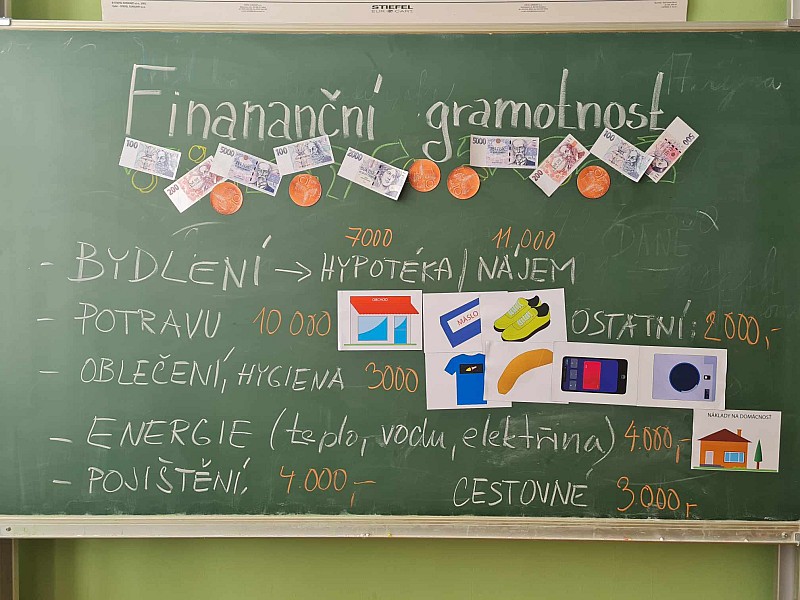 STIEFEL
EUROCART
Finananční gramotnost
100 200 5000 100 2000 5000 200 100 500
7000 11,000
DANĚ
- BYDLENÍ → HYPOTÉKA / NÁJEM
- POTRAVU 10 000 OBCHOD MÁSLO OSTATNÍ: 2000,-
- OBLEČENÍ, HYGIENA 3000
NÁKLADY NA DOMÁCNOST
- ENERGIE (teplo, vodu, elektřina) 4.000,-
- POJIŠTĚNÍ. 4.000,- CESTOVNÉ 3000,-